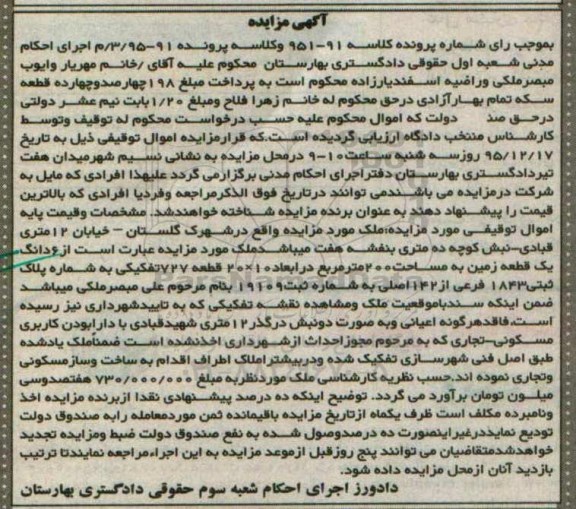 آگهی مزایده
بموجب رای شماره پرونده کلاسه ۹۱-۹۵۱ وکلاسه پرونده ۹۱-۳/۹۵/م اجرای احکام
مدنی شعبه اول حقوقی دادگستری بهارستان محکوم علیه آقای /خانم مهریار وایوب
مبصرملکی وراضیه اسفندیارزاده محکوم است به پرداخت مبلغ ۱۹۸چهارصدوچهارده قطعه
سکه تمام بهارآزادی درحق محکوم له خانم زهرا فلاح ومبلغ ۱/۲۰بابت نیم عشر دولتی
درحق صند دولت که اموال محکوم علیه حسب درخواست محکوم له توقیف وتوسط
کارشناس منتخب دادگاه ارزیابی گردیده است.که قرارمزایده اموال توقیفی ذیل به تاریخ
۹۵/۱۲/۱۷ روزسه شنبه ساعت۱۰-۹ درمحل مزایده به نشانی نسیم شهرمیدان هفت
تیردادگستری بهارستان دفتراجرای احکام مدنی برگزارمی گردد علیهذا افرادی که مایل به
شرکت درمزایده می باشندمی توانند درتاریخ فوق الذکرمراجعه وفردیا افرادی که بالاترین
قیمت را پیشنهاد دهند به عنوان برنده مزایده شناخته خواهندشد. مشخصات وقیمت پایه
اموال توقیفی مورد مزایده:ملک مورد مزایده واقع درشهرک گلستان – خیابان ۱۲متری
قبادی-نبش کوچه ده متری بنفشه هفت میباشدملک مورد مزایده عبارت است از۶دانگ
یک قطعه زمین به مساحت۲۰۰مترمربع درابعاد۱۰*۲۰ قطعه ۷۲۷تفکیکی به شماره پلاک
ثبتی۱۸۴۳ فرعی از۱۴۲اصلی به شماره ثبت۱۹۱۰۹ بنام مرحوم علی مبصرملکی میباشد
ضمن اینکه سندباموقعیت ملک ومشاهده نقشه تفکیکی که به تاییدشهرداری نیز رسیده
است،فاقدهرگونه اعیانی وبه صورت دونبش درگذر۱۲متری شهیدقبادی با دارابودن کاربری
مسکونی-تجاری که به مرحوم مجوزاحداث ازشهرداری اخذنشده است ضمناًملک یادشده
طبق اصل فنی شهرسازی تفکیک شده ودربیشتراملاک اطراف اقدام به ساخت وسازمسکونی
وتجاری نموده اند.حسب نظریه کارشناسی ملک موردنظربه مبلغ ۷۳۰/۰۰۰/۰۰۰ هفتصدوسی
میلیون تومان برآورد می گردد. توضیح اینکه ده درصد پیشنهادی نقدا ازبرنده مزایده اخذ
ونامبرده مکلف است ظرف یکماه ازتاریخ مزایده باقیمانده ثمن موردمعامله رابه صندوق دولت
تودیع نمایددرغیراینصورت ده درصدوصول شده به نفع صندوق دولت ضبط ومزایده تجدید
خواهدشدمتقاضیان می توانند پنج روزقبل ازموعد مزایده به این اجراءمراجعه نمایندتا ترتیب
بازدید آنان ازمحل مزایده داده شود.
دادورز اجرای احکام شعبه سوم حقوقی دادگستری بهارستان